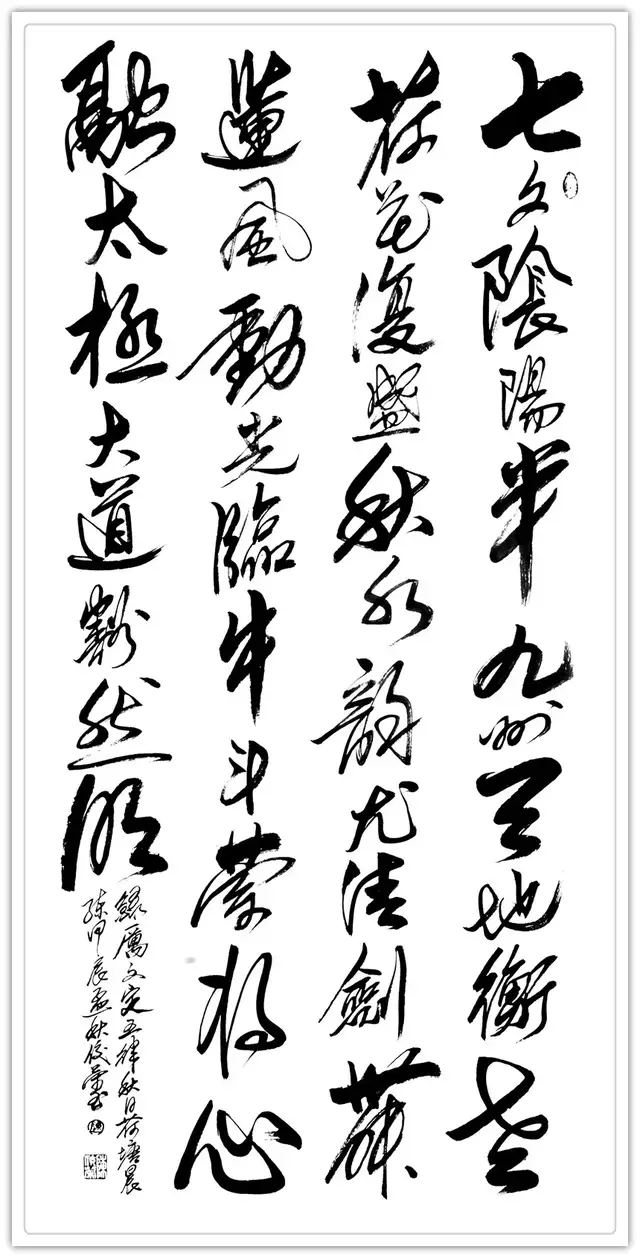 七夕陰陽半九州天地衡老
荷花復盛秋水韻尤清劍舞
蓮風動光臨牛斗縈將心
融太極大道豁然明
錄厲文定五律秋日荷塘晨
練甲辰孟秋俊榮書